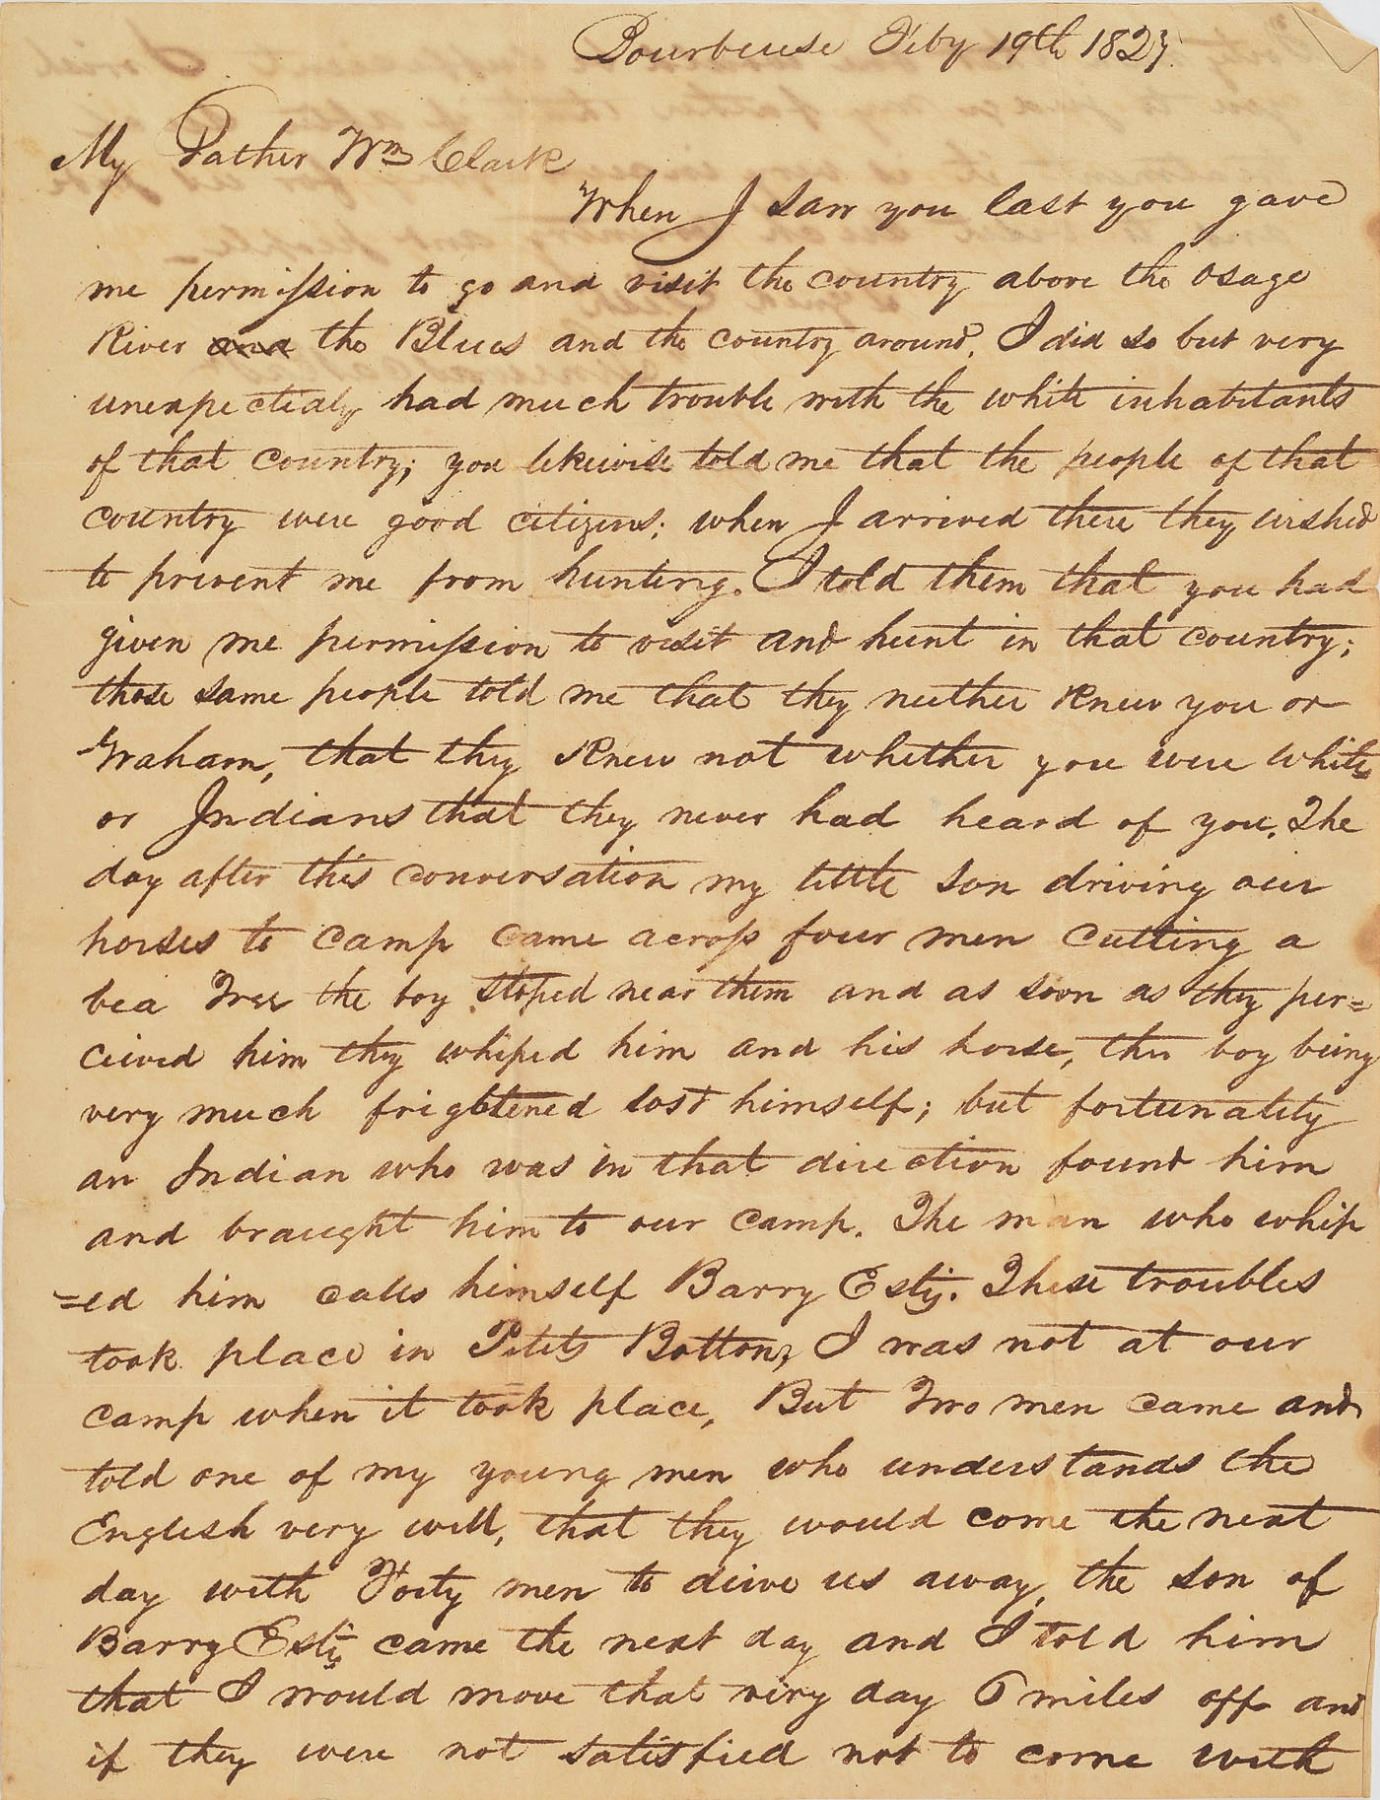 Bourbeuse Feby 19th 1827.
My Father Wm Clark
When I saw you last you gave
me permission to go and visit the country above the Osage
River and the Blues and the country around. I did so but very
unexpectedly had much trouble with the white inhabitants
of that country; you likewise told me that the people of that
country were good citizens; when I arrived there they wished
to prevent me from hunting. I told them that you had
given me permission to visit and hunt in that country;
those same people told me that they neither knew you or
Graham, that they knew not whether you were white
or Indians that they never had heard of you. The
day after this conversation my little son driving our
horses to camp came across four men cutting a
bea Tree the boy stoped near them and as soon as they per=
ceived him they whiped him and his horse, the boy being
very much frightened lost himself; but fortunately
an Indian who was in that direction found him
and braught him to our camp. The man who whip
=ed him calls himself Barry Esty. These troubles
took place in Petits Bottom, I was not at our
camp when it took place, But Two men came and
told one of my young men who understands the
English very well, that they would come the next
day with Forty men to drive us away, the son of
Barry Esty came the next day and I told him
that I would move that very day 6 miles off and
if they were not satisfied not to come with